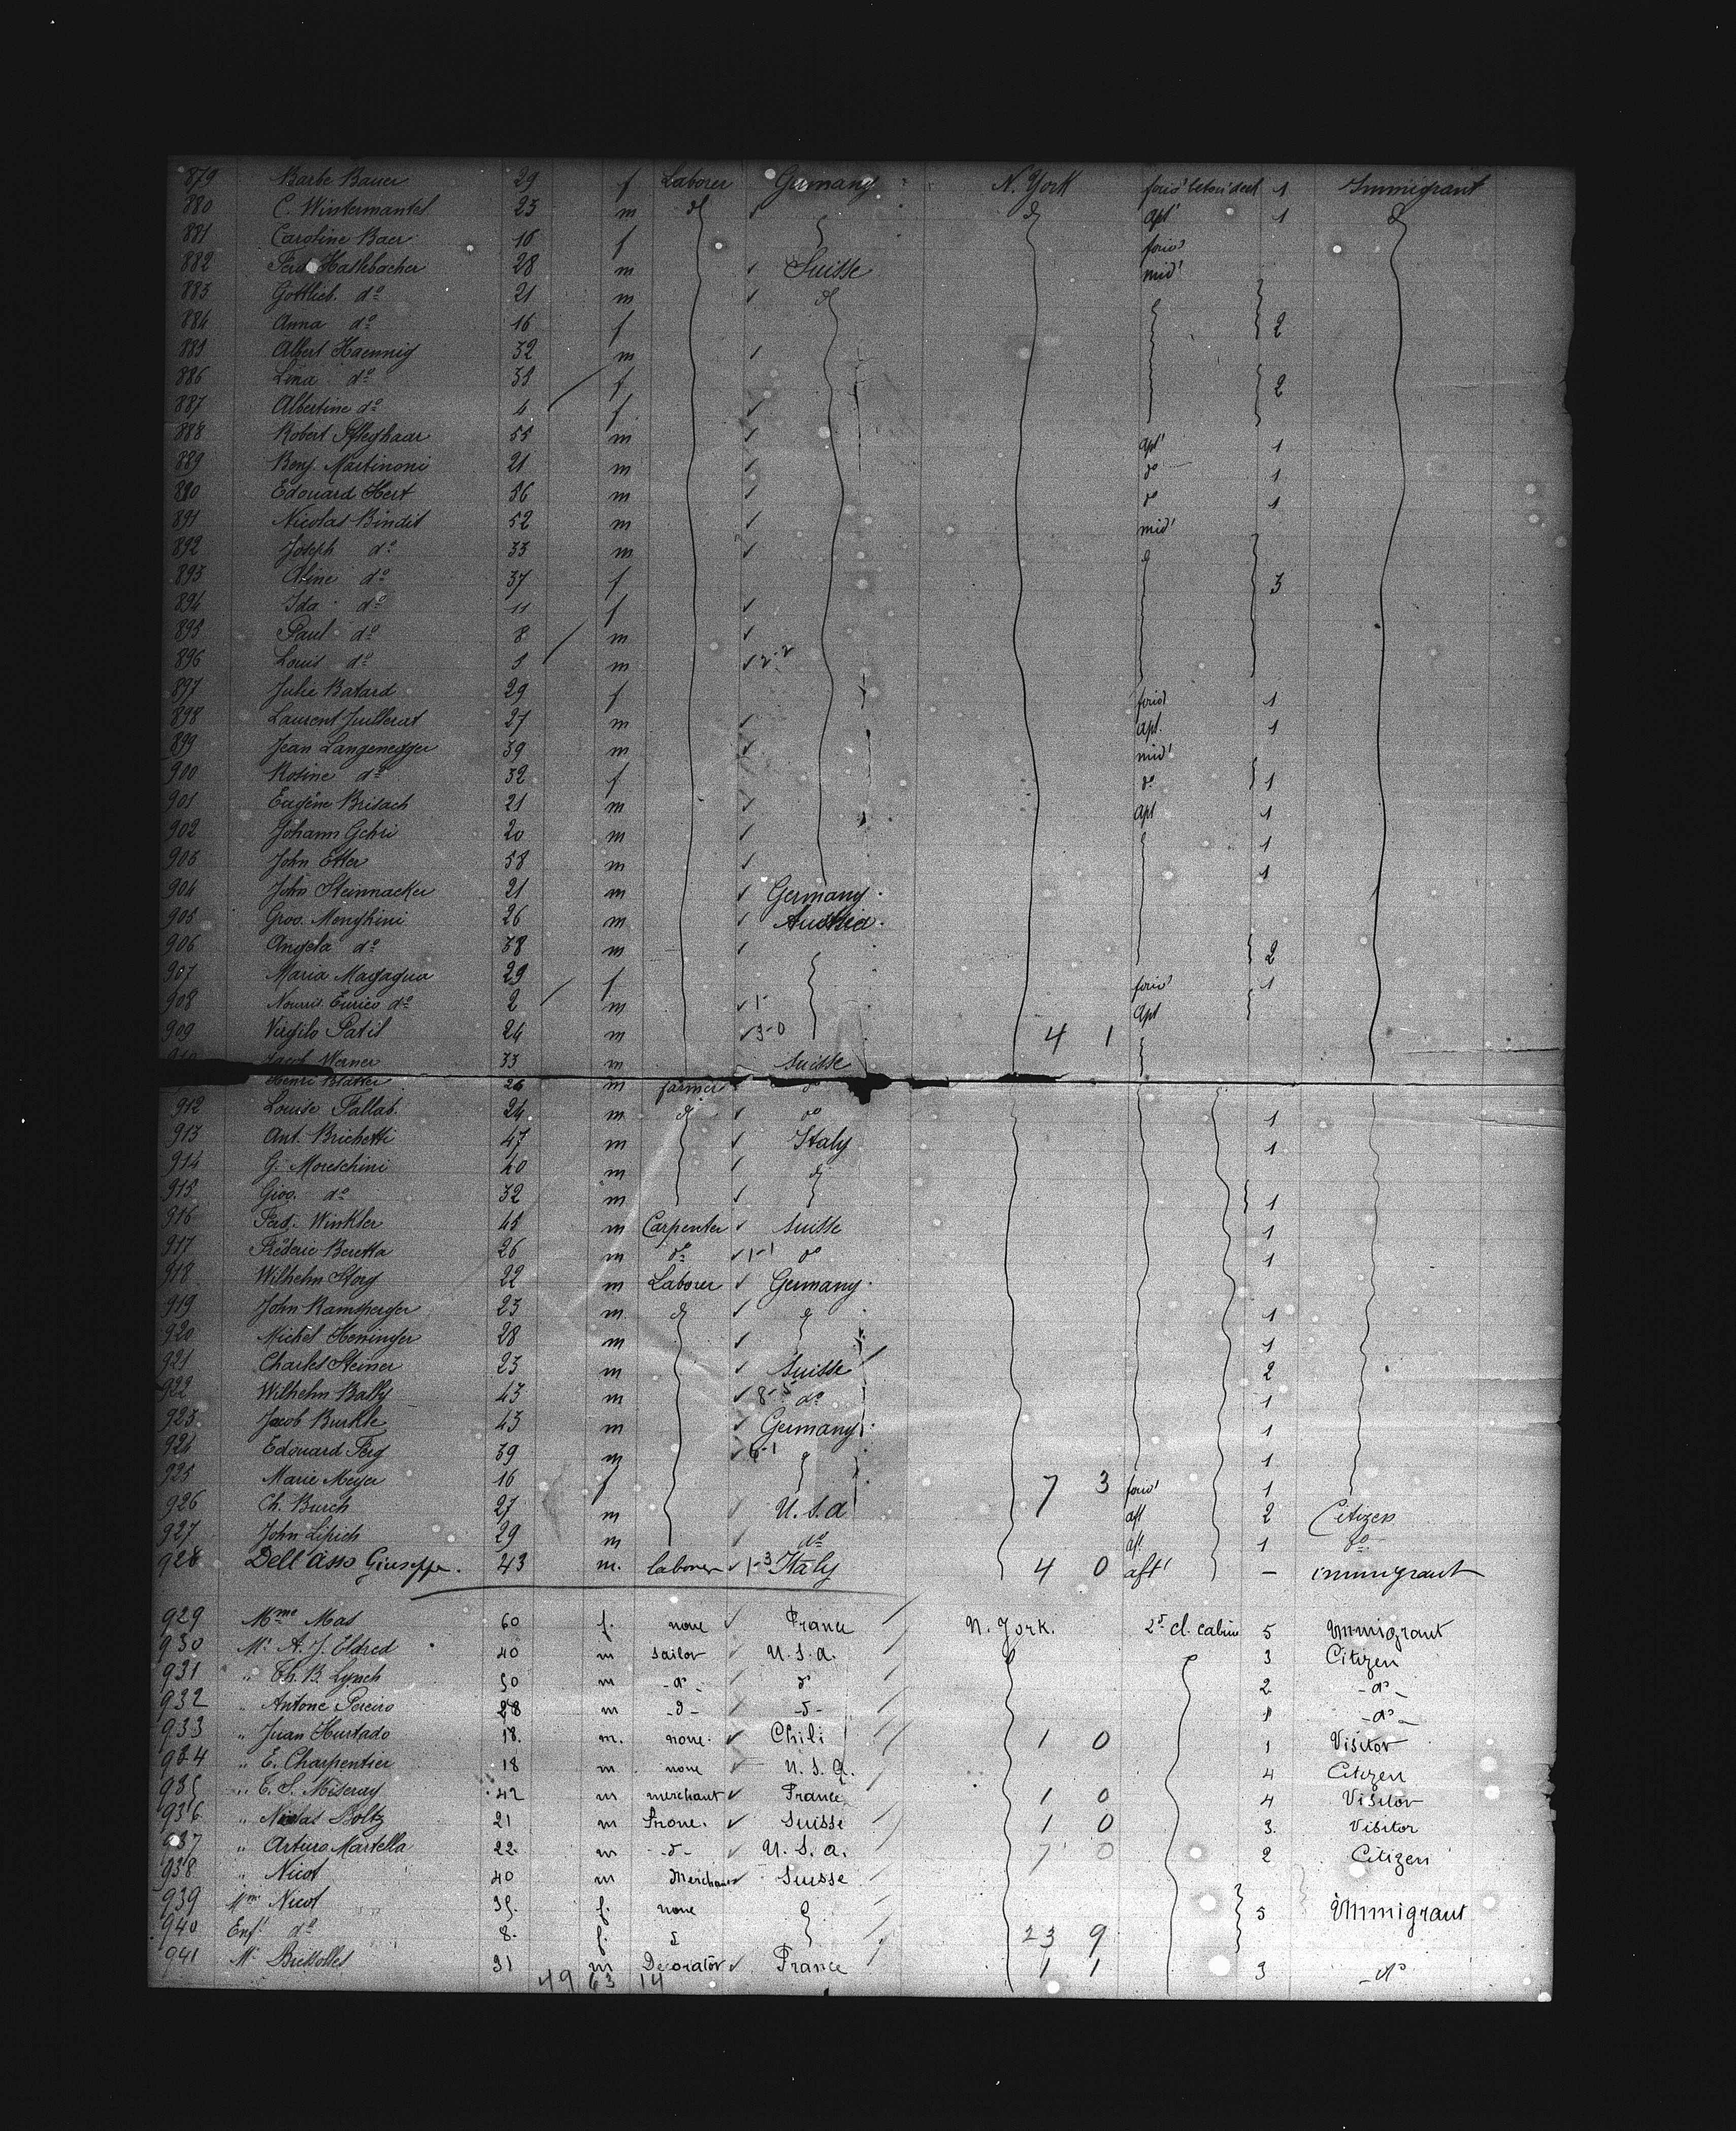 879 Barbe Bauer 29 f Laborer Germany N. York 1 Immigrant
880 C. Wintermantel 25 m do do apt 1 do
881 Caroline Baer 16 f forwd
882 Ferd Haslebacher 28 m Suisse mid'
883 Gottlieb. do 21 m do
884 Anna do 16 f 2
885 Albert Haennig 32 m
886 Lina do 35 f 2
887 Albertine do 4 f
888 Robert Pfleghaar 55 m apt 1
889 Benj. Martinoni 21 m do 1
890 Edouard Hert 36 m do 1
891 Nicolas Bindit 52 m mid'
892 Joseph do 33 m
893 Aline do 37 f 3
894 Ida do 11 f
895 Paul do 8 m
896 Louis do 5 m
897 Julie Batard 29 f forwd 1
898 Laurent Juillerat 27 m apt. 1
899 Jean Langenegger 39 m mid'
900 Rosine do 32 f do 1
901 Eugène Brisach 21 m apt 1
902 Johann Gehri 20 m 1
903 John Etter 58 m 1
904 John Steinnacker 21 m Germany
905 Giov. Menghini 26 m Austria
906 Angela do 38 m 2
907 Maria Magagna 29 f forwd 1
908 Nourris. Enrico do 2 m 1- apt
909 Virgilo Patil 24 m 3-0 4 1
Jacob Werner 33 m Suisse
Henri Blatter 26 m farmer do
912 Louise Fallab. 24 m do do 1
913 Ant. Brichetti 47 m Italy 1
914 G. Moreschini 40 m do
915 Giov. do 32 m 1
916 Ferd. Winkler 45 m Carpenter Suisse 1
917 Fréderic Beretta 26 m do 1-1 do 1
918 Wilhelm Storg 22 m Laborer Germany
919 John Ramsperger 23 m do do 1
920 Michel Heninger 28 m 1
921 Charles Steiner 23 m Suisse 2
922 Wilhelm Bally 43 m 8-5 do 1
923 Jacob Burkle 43 m Germany 1
924 Edouard Ferg 39 m 6-1 1
925 Marie Meyer 16 f 7 3 forwd 1
926 Ch. Burch 27 m U.S.a 2 Citizen
927 John Lipich 29 m do 1 do
928 Dell'asso Giuseppe. 43 m. laborer 1-3 Italy 4 0 aft' - immigrant
929 Mme Mas 60 f. none France N. York. 2d cl. cabin 5 Immigrant
930 Mr. A. J. Eldred 40 m sailor U.S.a. 3 Citizen
931 " Th. B. Lynch 50 m -do- do 2 -do-
932 " Antone Pereiro 28 m -d- -d- 1 -do-
933 " Juan Hurtado 18. m. none. Chili 1 0 1 Visitor
934 " E. Charpentier 18 m none U.S.a. 4 Citizen
935 " E. S. Miseray 42 m merchant France 1 0 4 Visitor
936 " Nicolas Boltz 21 m none. Suisse 1 0 3. Visitor
937 " Arturo Martella 22 m -d- U.S.a. 7 0 2 Citizen
938 " Nicot 40 m Merchant Suisse
939 Mme Nicot 35. f. none 5 Immigrant
940 Enft do 8. f. d 23 9
941 Mr 31 m Decorator France 1 1 3 -do
49 63 14